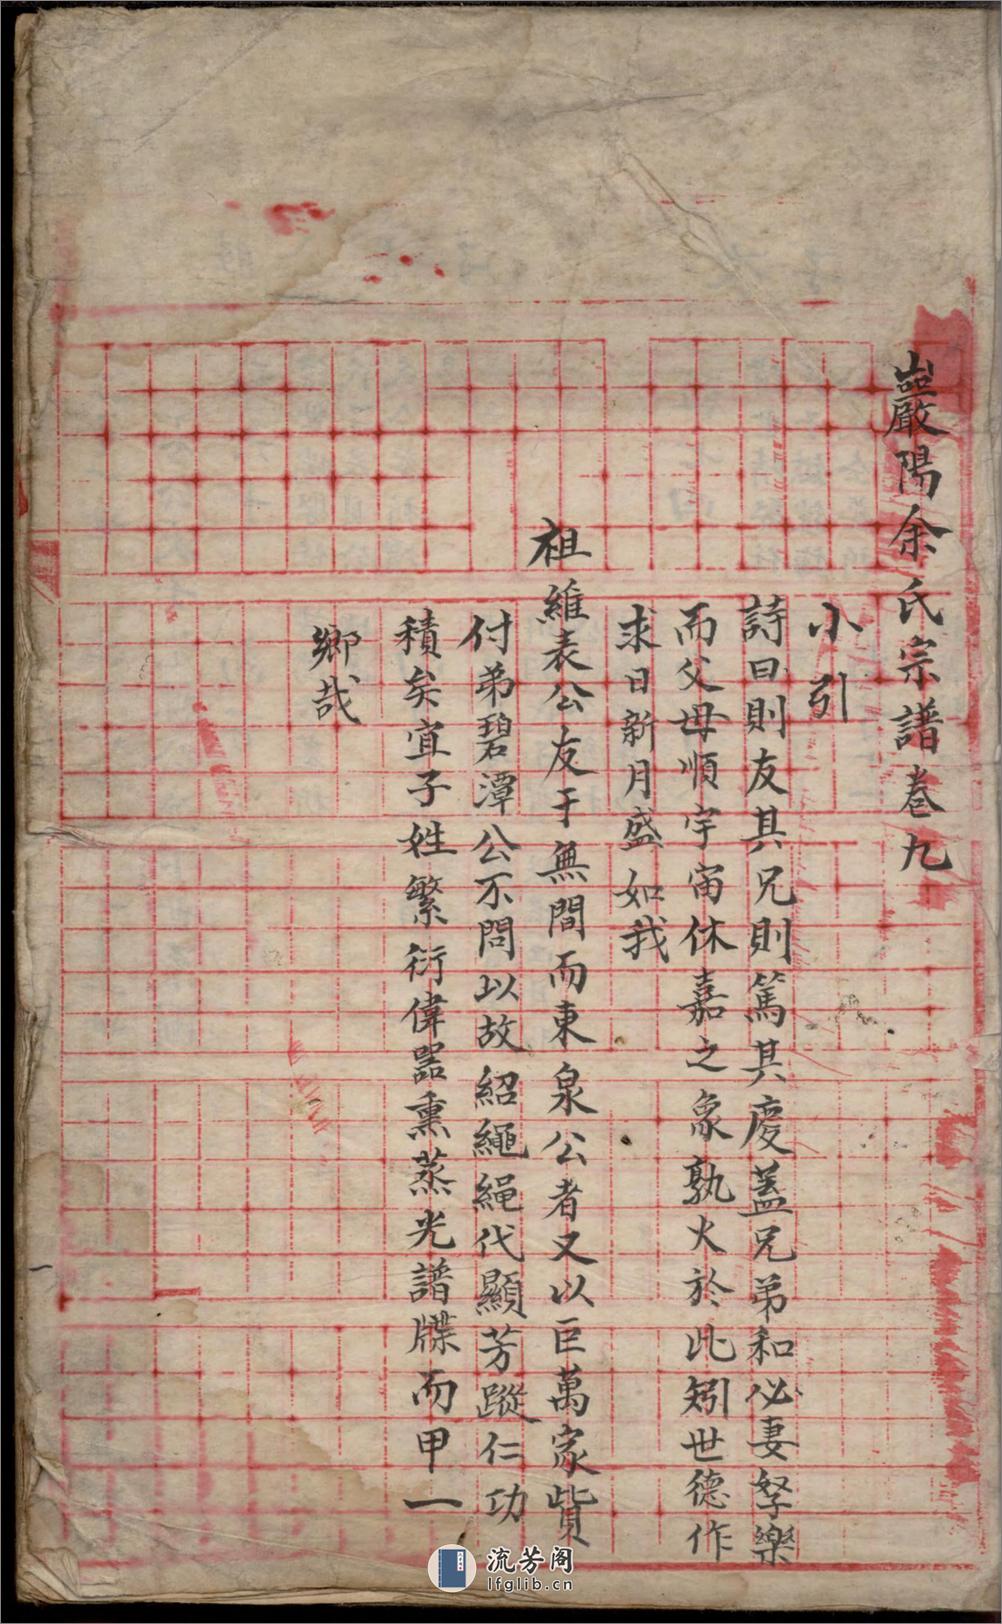 巖陽余氏宗譜卷九
小引
詩曰則友其兄則篤其慶蓋兄弟和必妻孥樂
而父母順宇甯休嘉之象孰火於此矧世德作
求日新月盛如我
祖維表公友于無間而東泉公者又以巨萬家貲
付弟碧潭公不問以故紹繩繩代顯芳蹤仁功
積矣宜子姓繁衍偉器熏蒸光譜牒而甲一
鄉哉
流芳阁
lfglib.cn